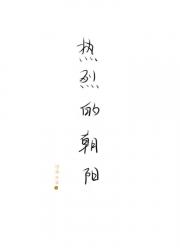 热烈的朝阳